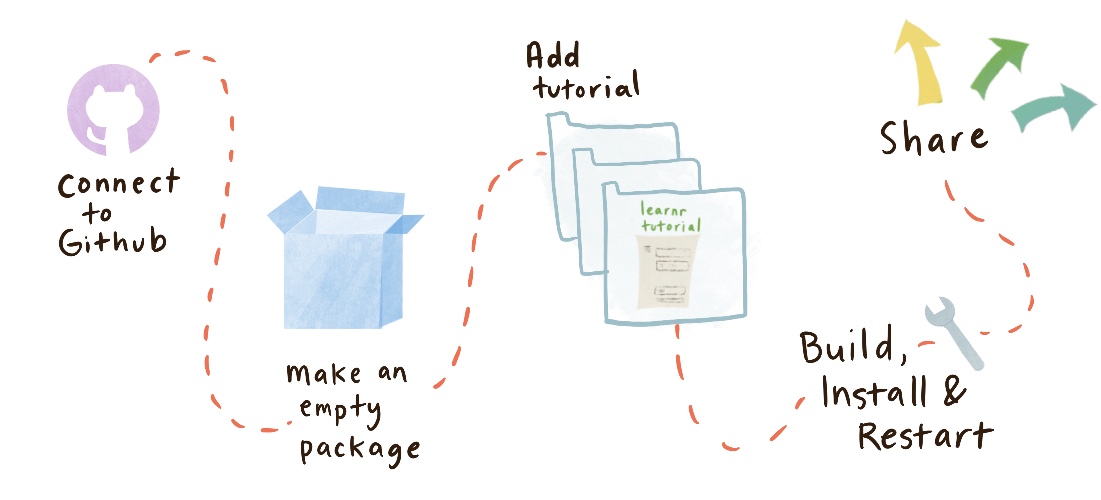 Connect
to
Github
make an
empty
package
Add
tutorial
learnr
tutorial
Build,
Install &
Restart
Share